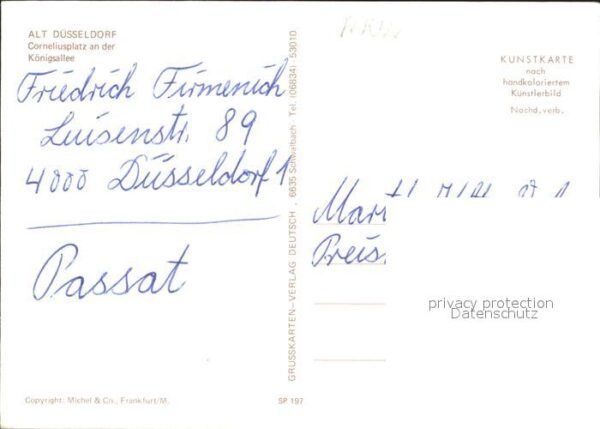 ALT DÜSSELDORF
Corneliusplatz an der
Königsallee
Friedrich Firmenich
Luisenstr. 89
4000 Düsseldorf 1
Passat
Copyright: Michel & Co., Frankfurt/M.
SP 197
GRUSSKARTEN-VERLAG DEUTSCH, 6835 Schwalbach Tel. (06834) 53010
KUNSTKARTE
nach
handkoloriertem
Künstlerbild
Nachd. verb.
privacy protection
Datenschutz